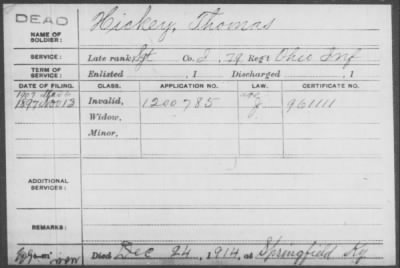 DEAD
Hickey, Thomas
NAME OF SOLDIER:
SERVICE: Late rank, Sgt Co. I, 79 Reg't Ohio Inf
TERM OF SERVICE: Enlisted , 1 Discharged , 1
DATE OF FILING. CLASS. APPLICATION NO. LAW. CERTIFICATE NO.
1897 Invalid, 1200785 J 961111
Widow,
Minor,
ADDITIONAL SERVICES:
REMARKS:
Died Dec 24, 1914, at Springfield Ky